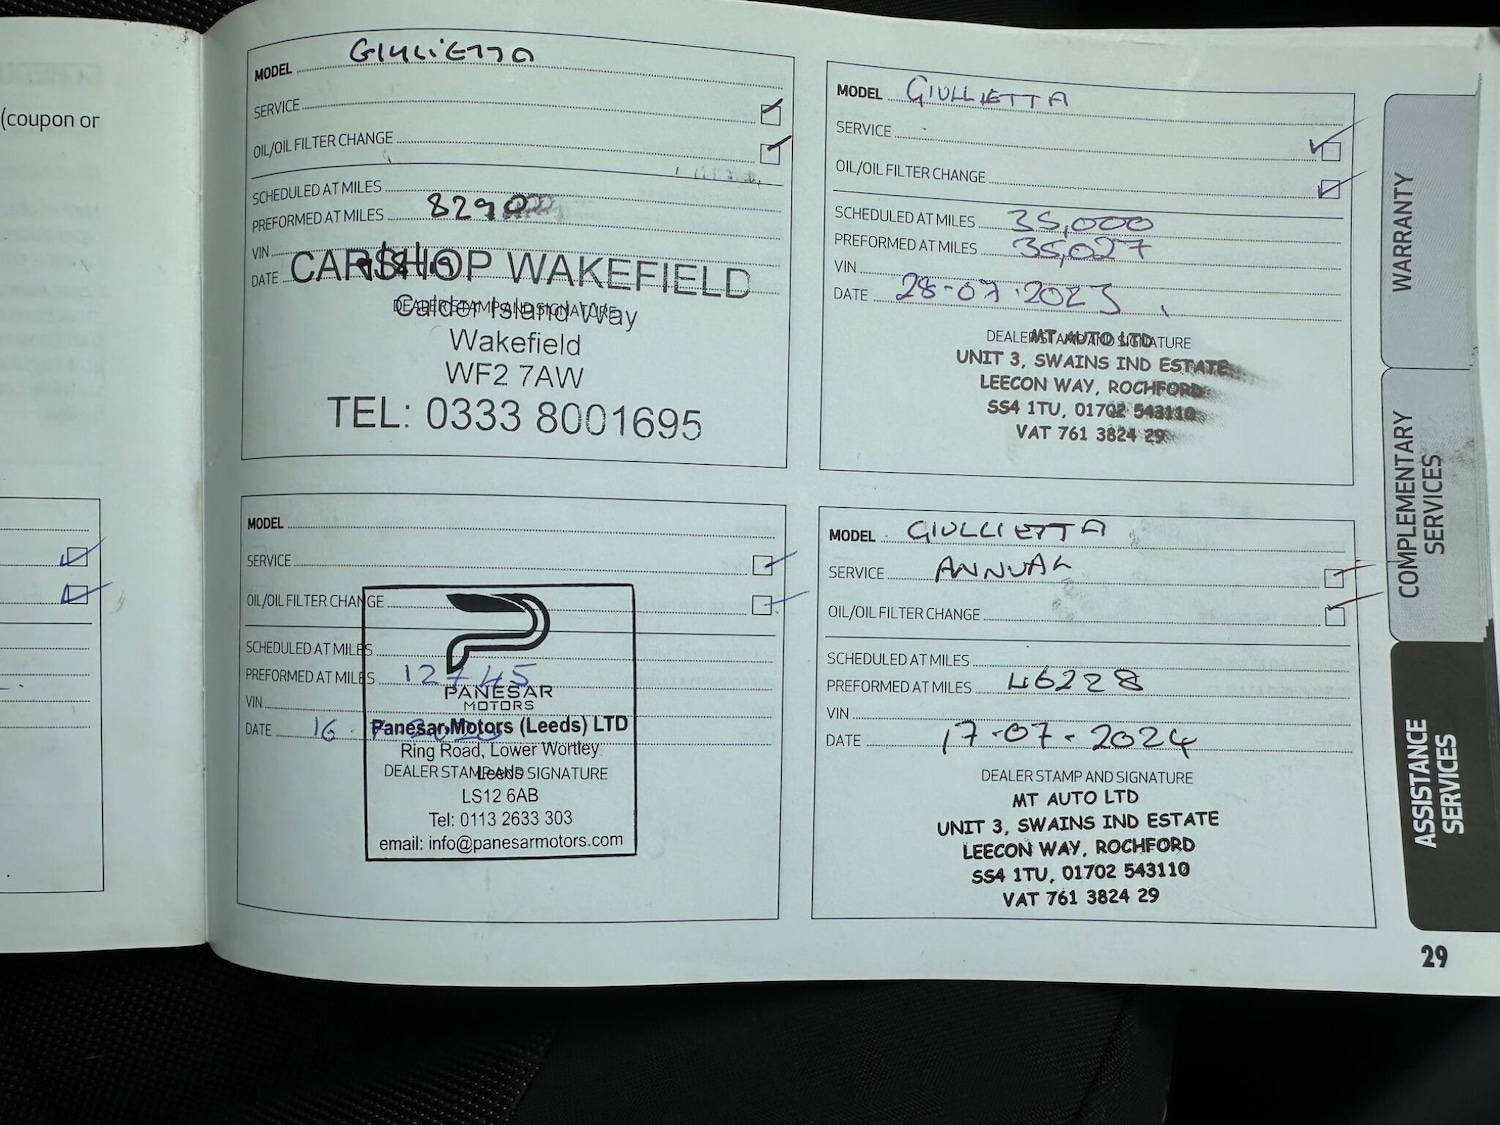 (coupon or
MODEL GIULIETTA
SERVICE
OIL/OIL FILTER CHANGE
SCHEDULED AT MILES
PREFORMED AT MILES 8290
VIN
DATE
CARSHOP WAKEFIELD
DEALER STAMP AND SIGNATURE
Calder Island Way
Wakefield
WF2 7AW
TEL: 0333 8001695
MODEL GIULLIETTA
SERVICE
OIL/OIL FILTER CHANGE
SCHEDULED AT MILES 35,000
PREFORMED AT MILES 35,027
VIN
DATE 28-07-2023
DEALER STAMP AND SIGNATURE
MT AUTO LTD
UNIT 3, SWAINS IND ESTATE
LEECON WAY, ROCHFORD
SS4 1TU, 01702 543110
VAT 761 3824 29
MODEL
SERVICE
OIL/OIL FILTER CHANGE
SCHEDULED AT MILES
PREFORMED AT MILES 12745
PANESAR
MOTORS
VIN
DATE 16
Panesar Motors (Leeds) LTD
Ring Road, Lower Wortley
DEALER STAMP AND SIGNATURE
Leeds
LS12 6AB
Tel: 0113 2633 303
email: info@panesarmotors.com
MODEL GIULLIETTA
SERVICE ANNUAL
OIL/OIL FILTER CHANGE
SCHEDULED AT MILES
PREFORMED AT MILES 46228
VIN
DATE 17-07-2024
DEALER STAMP AND SIGNATURE
MT AUTO LTD
UNIT 3, SWAINS IND ESTATE
LEECON WAY, ROCHFORD
SS4 1TU, 01702 543110
VAT 761 3824 29
WARRANTY
COMPLEMENTARY
SERVICES
ASSISTANCE
SERVICES
29